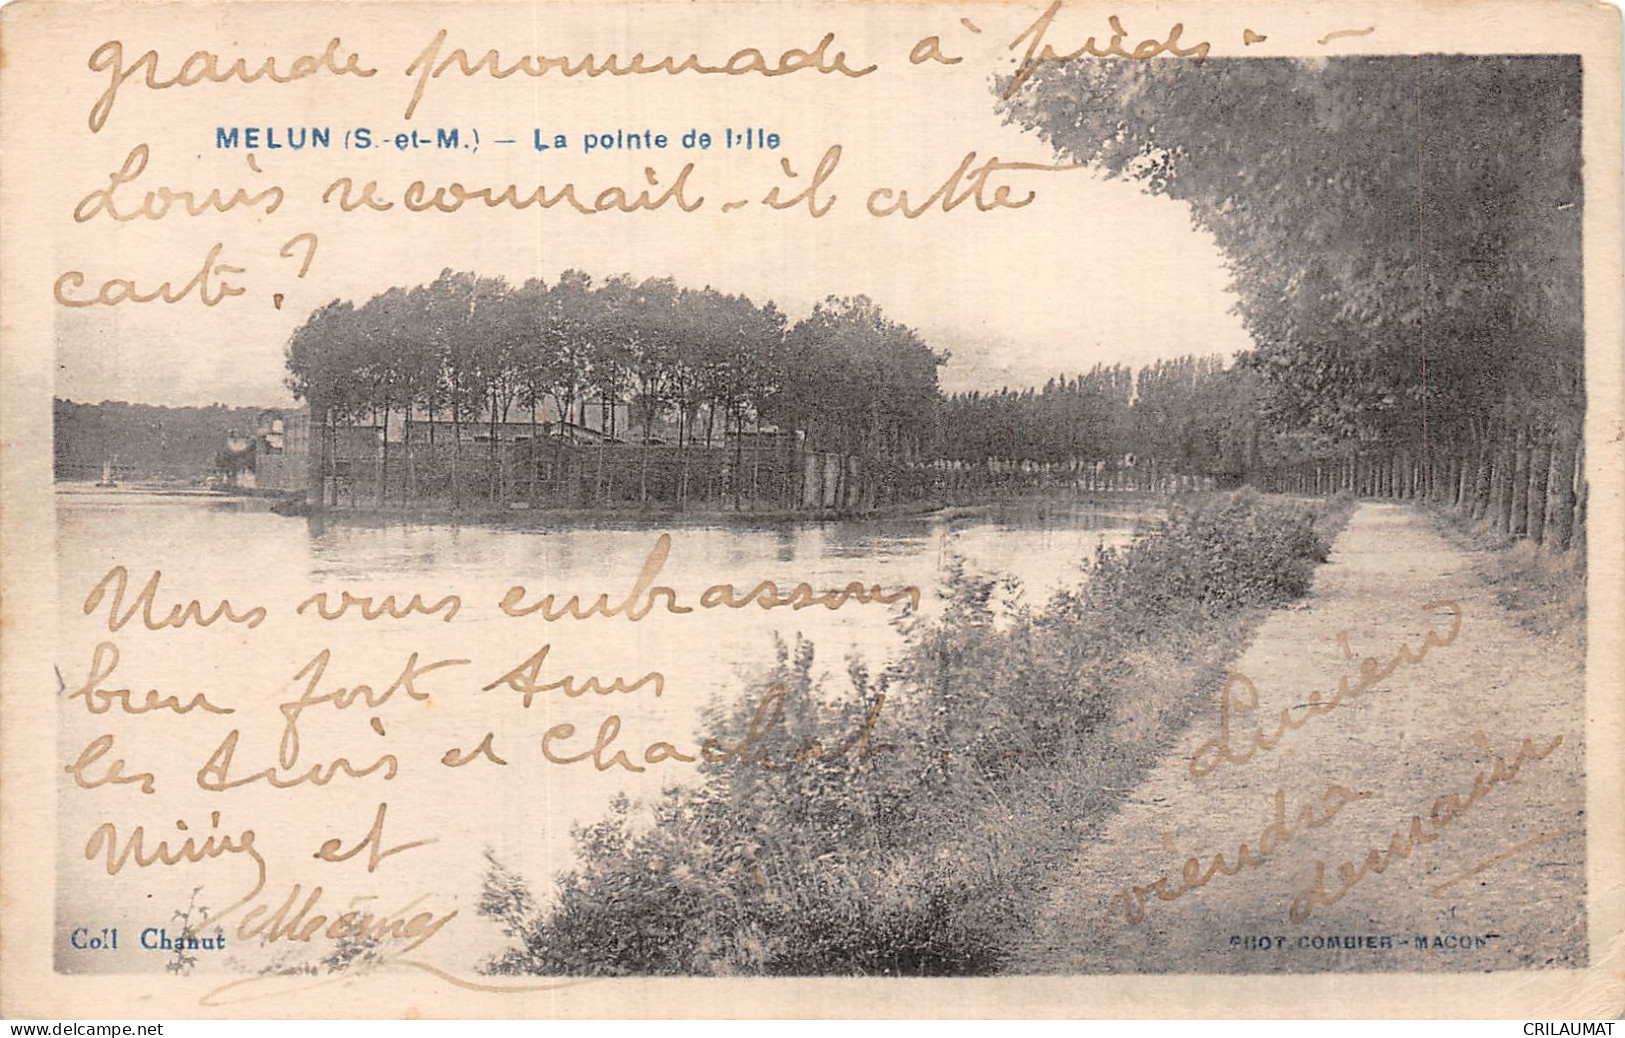 grande promenade à pieds - -
MELUN (S.-et-M.) — La pointe de l'Ile
Louis reconnait-il cette
carte ?
Nous vous embrassons
bien fort tous
les trois et Chachat . -
Nini et
Mémé
Lucien
viendra
demain
Coll Chanut
PHOT. COMBIER - MACON
CRILAUMAT
www.delcampe.net